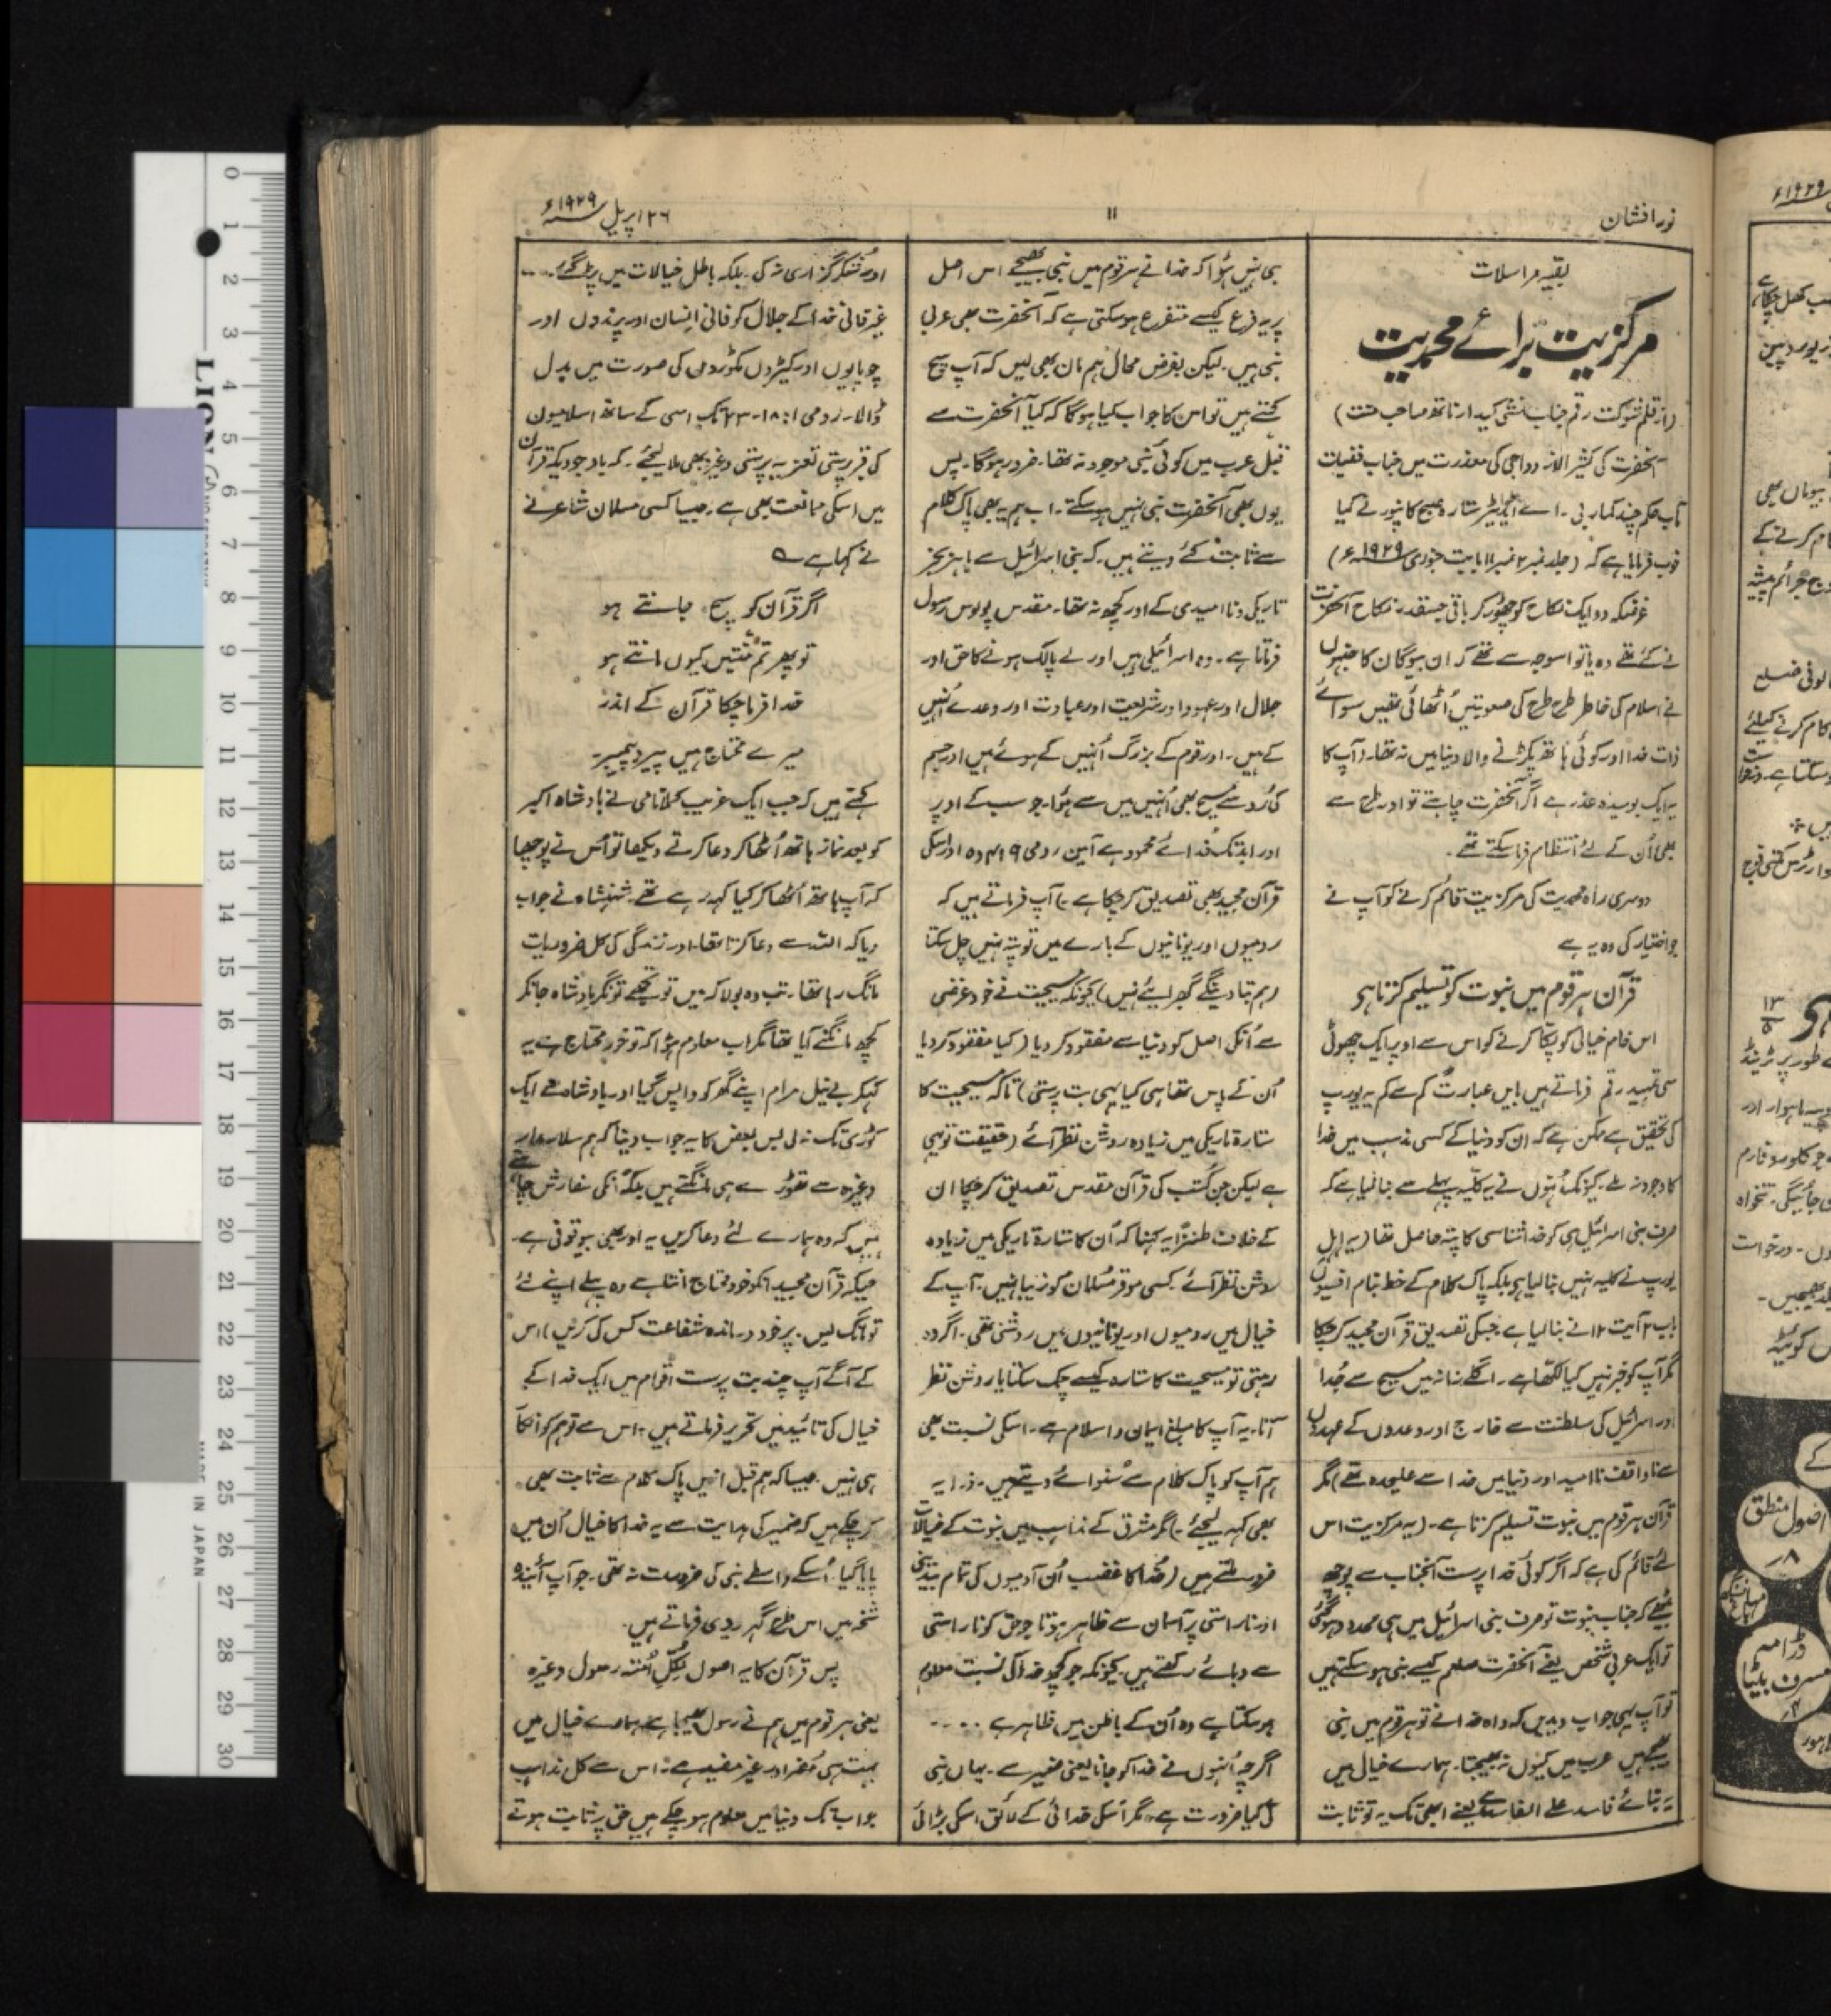 نور افشاں
۱۱
۲۶ اپریل ۱۹۲۹ء
بقیہ مراسلات
مرکزیت برائے محمدیت
(از قلم شوکت رقم جناب منشی کیدار ناتھ صاحب منت)
آنحضرت کی کثیر الازدواجی کی معذرت میں جناب فضیات
مآب حکم چند کمار بی۔ اے ایڈیٹر ستارہ صبح کانپور نے کیا
خوب فرمایا ہے کہ (جلد نمبر ۲ نمبر ۱۱ بابت جنوری ۱۹۲۹ء)
غرضکہ دو ایک نکاح کو چھوڑ کر باقی جسقدر نکاح آنحضرت
نے کئے تھے وہ یا تو اسوجہ سے تھے کہ ان بیوگان کا جنہوں
نے اسلام کی خاطر طرح طرح کی صعوبتیں اُٹھائی تھیں سوائے
ذات خدا اور کوئی ہاتھ پکڑنے والا دنیا میں نہ تھا۔ (آپ کا
یہ ایک بوسیدہ عذر ہے اگر آنحضرت چاہتے تو اور طرح سے
بھی اُن کے لئے انتظام فرما سکتے تھے۔
دوسری راہ محمدیت کی مرکزیت قائم کرنے کو آپ نے
جو اختیار کی وہ یہ ہے
قرآن ہر قوم میں نبوت کو تسلیم کرتا ہی
اس خام خیالی کو پکا کرنے کو اس سے اوپر ایک چھوٹی
سی تمہید رقم فرماتے ہیں بایں عبارت کم سے کم یہ یورپ
کی تحقیق ہے ممکن ہے کہ ان کو دنیا کے کسی مذہب میں خدا
کا وجود نہ ملے۔ کیونکہ اُنہوں نے یہ کلیہ پہلے سے بنا لیا ہے کہ
صرف بنی اسرائیل ہی کو خدا شناسی کا پتہ حاصل تھا (یہ اہل
یورپ نے کلیہ نہیں بنا لیا ہی بلکہ پاک کلام کے خط بنام افسیوں
باب ۲ آیت ۱۲ نے بنا لیا ہے جسکی تصدیق قرآن مجید کرچکا
مگر آپ کو خبر نہیں کیا لکھا ہے۔ اگلے زمانہ میں مسیح سے جُدا
اور اسرائیل کی سلطنت سے خارج اور وعدوں کے عہدوں
سے ناواقف نا امید اور دنیا میں خدا سے علیحدہ تھے) مگر
قرآن ہر قوم میں نبوت تسلیم کرتا ہے۔ (یہ مرکزیت اس
لئے قائم کی ہے کہ اگر کوئی خدا پرست آنجناب سے پوچھ
بیٹھے کہ جناب نبوت تو صرف بنی اسرائیل میں ہی محدود ہو گئی
تو ایک عربی شخص یعنے آنحضرت صلعم کیسے نبی ہو سکتے ہیں
تو آپ یہی جواب دیدیں کہ واہ خدا نے تو ہر قوم میں نبی
بھیجے ہیں عرب میں کیوں نہ بھیجتا۔ ہمارے خیال میں
یہ بنائے فاسد علے الفاسد ہے یعنے ابھی تک یہ تو ثابت
ہی نہیں ہؤا کہ خدا نے ہر قوم میں نبی بھیجے اس اصل
پر یہ فرع کیسے متفرع ہو سکتی ہے کہ آنحضرت بھی عربی
نبی ہیں۔ لیکن بفرض محال ہم مان بھی لیں کہ آپ سچ
کہتے ہیں تو اس کا جواب کیا ہوگا کہ کیا آنحضرت سے
قبل عرب میں کوئی نبی موجود نہ تھا۔ ضرور ہوگا۔ پس
یوں بھی آنحضرت نبی نہیں ہو سکتے۔ اب ہم یہ بھی پاک کلام
سے ثابت کئے دیتے ہیں۔ کہ بنی اسرائیل سے باہر بجز
تاریکی و نا امیدی کے اور کچھ نہ تھا۔ مقدس پولوس رسول
فرماتا ہے۔ وہ اسرائیلی ہیں اور لے پالک ہونے کا حق اور
جلال اور عہود اور شریعت اور عبادت اور وعدے اُنہیں
کے ہیں۔ اور قوم کے بزرگ اُنہیں کے ہوئے ہیں اور جسم
کی رُو سے مسیح بھی اُنہیں میں سے ہؤا۔ جو سب کے اوپر
اور ابد تک خدائے محمود ہے آمین۔ رومی ۹ : ۴ و ۵ اور اسکی
قرآن مجید بھی تصدیق کرچکا ہے۔) آپ فرماتے ہیں کہ
رومیوں اور یونانیوں کے بارے میں تو پتہ نہیں چل سکتا
(ہم بتا دینگے گھبرائیے نہیں) کیونکہ مسیحیت نے خود غرضی
سے اُنکی اصل کو دنیا سے مفقود کر دیا (کیا مفقود کر دیا
اُن کے پاس تھا ہی کیا یہی بت پرستی) تاکہ مسیحیت کا
ستارہ تاریکی میں زیادہ روشن نظر آئے (حقیقت تو یہی
ہے لیکن جن کُتب کی قرآن مقدس تصدیق کرچکا ان
کے خلاف طنزاً یہ کہنا کہ اُن کا ستارہ تاریکی میں زیادہ
روشن نظر آئے۔ کسی موقر مُسلمان کو زیبا نہیں۔ آپ کے
خیال میں رومیوں اور یونانیوں میں روشنی تھی۔ اگر وہ
رہتی تو مسیحیت کا ستارہ کیسے چمک سکتا یا روشن نظر
آتا۔ یہ آپ کا مبلغ ایمان و اسلام ہے۔ اسکی نسبت بھی
ہم آپ کو پاک کلام سے سُنوائے دیتے ہیں۔ ذرا یہ
بھی کہہ لیجئے۔) مگر مشرق کے مذاہب میں نبوت کے خیالات
ضرور ملتے ہیں (خُدا کا غضب اُن آدمیوں کی تمام بیدینی
اور ناراستی پر آسمان سے ظاہر ہوتا جو حق کو ناراستی
سے دبائے رکھتے ہیں۔ کیونکہ جو کچھ خدا کی نسبت معلوم
ہو سکتا ہے وہ اُن کے باطن میں ظاہر ہے ....
اگرچہ اُنہوں نے خدا کو جانا یعنی ضمیر سے۔ یہاں نبی
کی کیا ضرورت ہے۔ مگر اُسکی خدائی کے لائق اسکی بڑائی
اور شُکر گزاری نہ کی۔ بلکہ باطل خیالات میں پڑ گئے....
غیر فانی خدا کے جلال کو فانی انسان اور پرندوں اور
چوپایوں اور کیڑوں مکوڑوں کی صورت میں بدل
ڈالا۔ رومی ۱ : ۱۸-۲۳ تک اسی کے ساتھ اسلامیوں
کی قبر پرستی تعزیہ پرستی وغیرہ بھی ملا لیجئے۔ کہ باوجودیکہ قرآن
میں اسکی ممانعت بھی ہے۔ جیسا کسی مسلمان شاعر نے
نے کہا ہے ؎
اگر قرآن کو سچ جانتے ہو
تو پھر تم منتیں کیوں مانتے ہو
خدا فرما چکا قرآن کے اندر
میرے محتاج ہیں پیر و پیمبر
کہتے ہیں کہ جب ایک غریب کملا نامی نے بادشاہ اکبر
کو بعد نماز ہاتھ اُٹھا کر دعا کرتے دیکھا تو اُس نے پوچھا
کہ آپ ہاتھ اُٹھا کر کیا کہہ رہے تھے۔ شہنشاہ نے جواب
دیا کہ اللہ سے دعا کرتا تھا۔ اور زندگی کی کل ضروریات
مانگ رہا تھا۔ تب وہ بولا کہ میں تو تجھے تونگر بادشاہ جانکر
کچھ مانگنے آیا تھا مگر اب معلوم ہؤا کہ تو خود محتاج ہے یہ
کہکر بے نیل مرام اپنے گھر کو واپس گیا اور بادشاہ سے ایک
کوڑی تک نہ لی بس بعض کا یہ جواب دینا کہ ہم سلار مدار
وغیرہ سے تھوڑے ہی مانگتے ہیں بلکہ اُنکی سفارش چاہتے
ہیں کہ وہ ہمارے لئے دعا کریں یہ اور بھی بیوقوفی ہے۔
جبکہ قرآن مجید انکو خود محتاج مانتا ہے وہ پہلے اپنے لئے
تو مانگ لیں۔ پر خود درماندہ شفاعت کس کی کریں) اس
کے آگے آپ چند بت پرست اقوام میں ایک خدا کے
خیال کی تائید میں تحریر فرماتے ہیں۔ اس سے تو ہم کو انکار
ہی نہیں۔ جیسا کہ ہم قبل ازیں پاک کلام سے ثابت بھی
کر چکے ہیں کہ ضمیر کی ہدایت سے یہ خدا کا خیال اُن میں
پایا گیا۔ اُسکے واسطے نبی کی ضرورت نہ تھی۔ جو آپ آئندہ
شخہ میں اس طرح گہر ریزی فرماتے ہیں۔
پس قرآن کا یہ اصول لِکُلِ اُمتہ رسول وغیرہ
یعنی ہر قوم میں ہم نے رسول بھیجا ہے ہمارے خیال میں
بہت ہی مُضر اور غیر مفید ہے۔ اس سے کل مذاہب
جو اب تک دنیا میں معلوم ہو چکے ہیں حق پر ثابت ہوتے